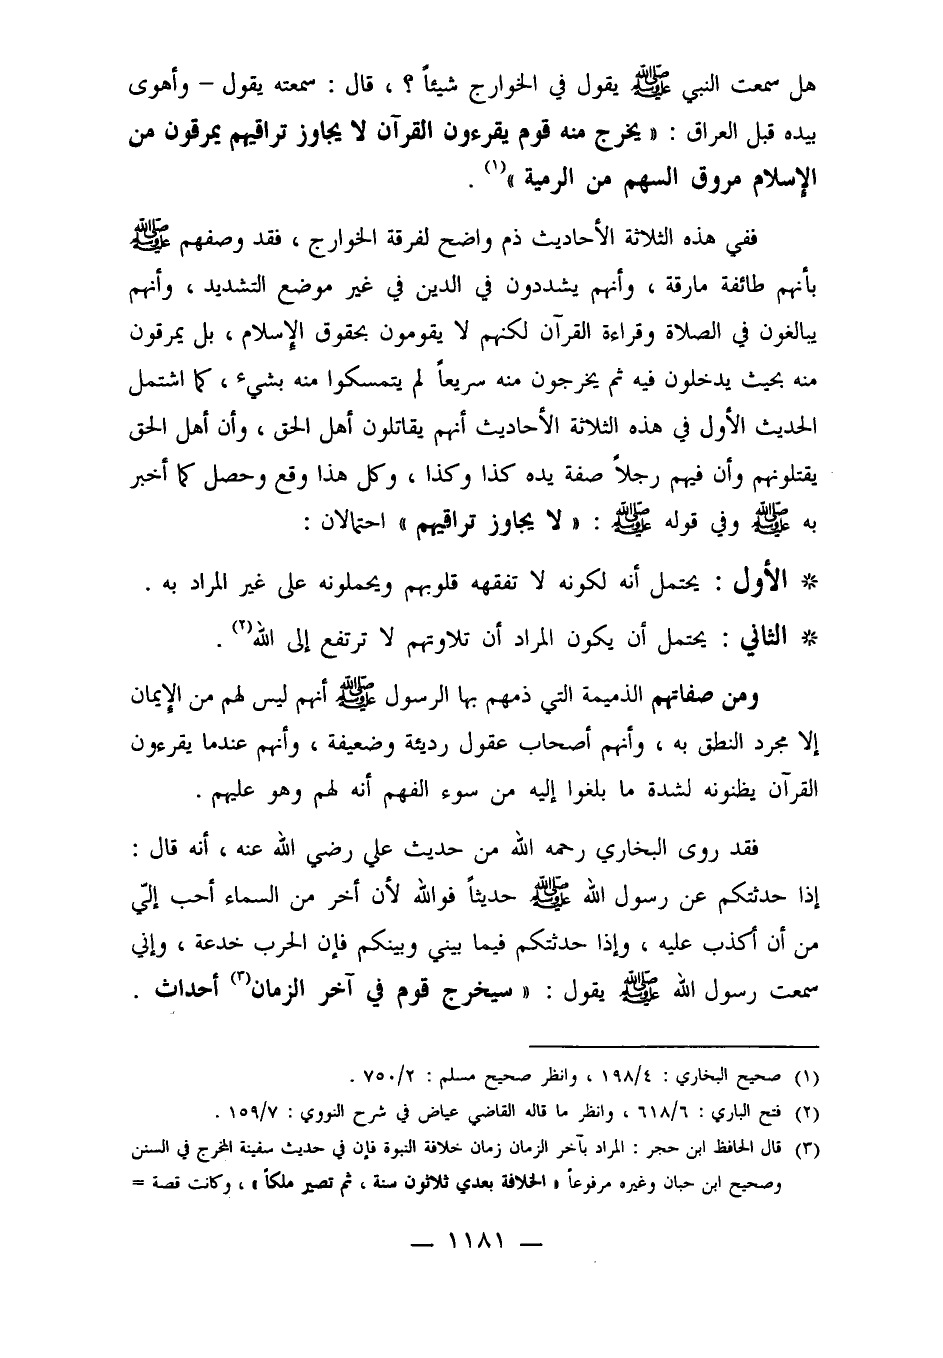 هل سمعت النبي ﷺ يقول في الخوارج شيئاً ؟ ، قال : سمعته يقول – وأهوى
بيده قبل العراق : « يخرج منه قوم يقرءون القرآن لا يجاوز تراقيهم يمرقون من
الإسلام مروق السهم من الرمية »(١) .
ففي هذه الثلاثة الأحاديث ذم واضح لفرقة الخوارج ، فقد وصفهم ﷺ
بأنهم طائفة مارقة ، وأنهم يشددون في الدين في غير موضع التشديد ، وأنهم
يبالغون في الصلاة وقراءة القرآن لكنهم لا يقومون بحقوق الإسلام ، بل يمرقون
منه بحيث يدخلون فيه ثم يخرجون منه سريعاً لم يتمسكوا منه بشيء ، كما اشتمل
الحديث الأول في هذه الثلاثة الأحاديث أنهم يقاتلون أهل الحق ، وأن أهل الحق
يقتلونهم وأن فيهم رجلاً صفة يده كذا وكذا ، وكل هذا وقع وحصل كما أخبر
به ﷺ وفي قوله ﷺ : « لا يجاوز تراقيهم » احتمالان :
* الأول : يحتمل أنه لكونه لا تفقهه قلوبهم ويحملونه على غير المراد به .
* الثاني : يحتمل أن يكون المراد أن تلاوتهم لا ترتفع إلى الله(٢) .
ومن صفاتهم الذميمة التي ذمهم بها الرسول ﷺ أنهم ليس لهم من الإيمان
إلا مجرد النطق به ، وأنهم أصحاب عقول رديئة وضعيفة ، وأنهم عندما يقرءون
القرآن يظنونه لشدة ما بلغوا إليه من سوء الفهم أنه لهم وهو عليهم .
فقد روى البخاري رحمه الله من حديث علي رضي الله عنه ، أنه قال :
إذا حدثتكم عن رسول الله ﷺ حديثاً فوالله لأن أخر من السماء أحب إليّ
من أن أكذب عليه ، وإذا حدثتكم فيما بيني وبينكم فإن الحرب خدعة ، وإني
سمعت رسول الله ﷺ يقول : « سيخرج قوم في آخر الزمان(٣) أحداث .
(١) صحيح البخاري : ١٩٨/٤ ، وانظر صحيح مسلم : ٧٥٠/٢ .
(٢) فتح الباري : ٦١٨/٦ ، وانظر ما قاله القاضي عياض في شرح النووي : ١٥٩/٧ .
(٣) قال الحافظ ابن حجر : المراد بآخر الزمان زمان خلافة النبوة فإن في حديث سفينة المخرج في السنن
وصحيح ابن حبان وغيره مرفوعاً « الخلافة بعدي ثلاثون سنة ، ثم تصير ملكاً » ، وكانت قصة =
— ١١٨١ —